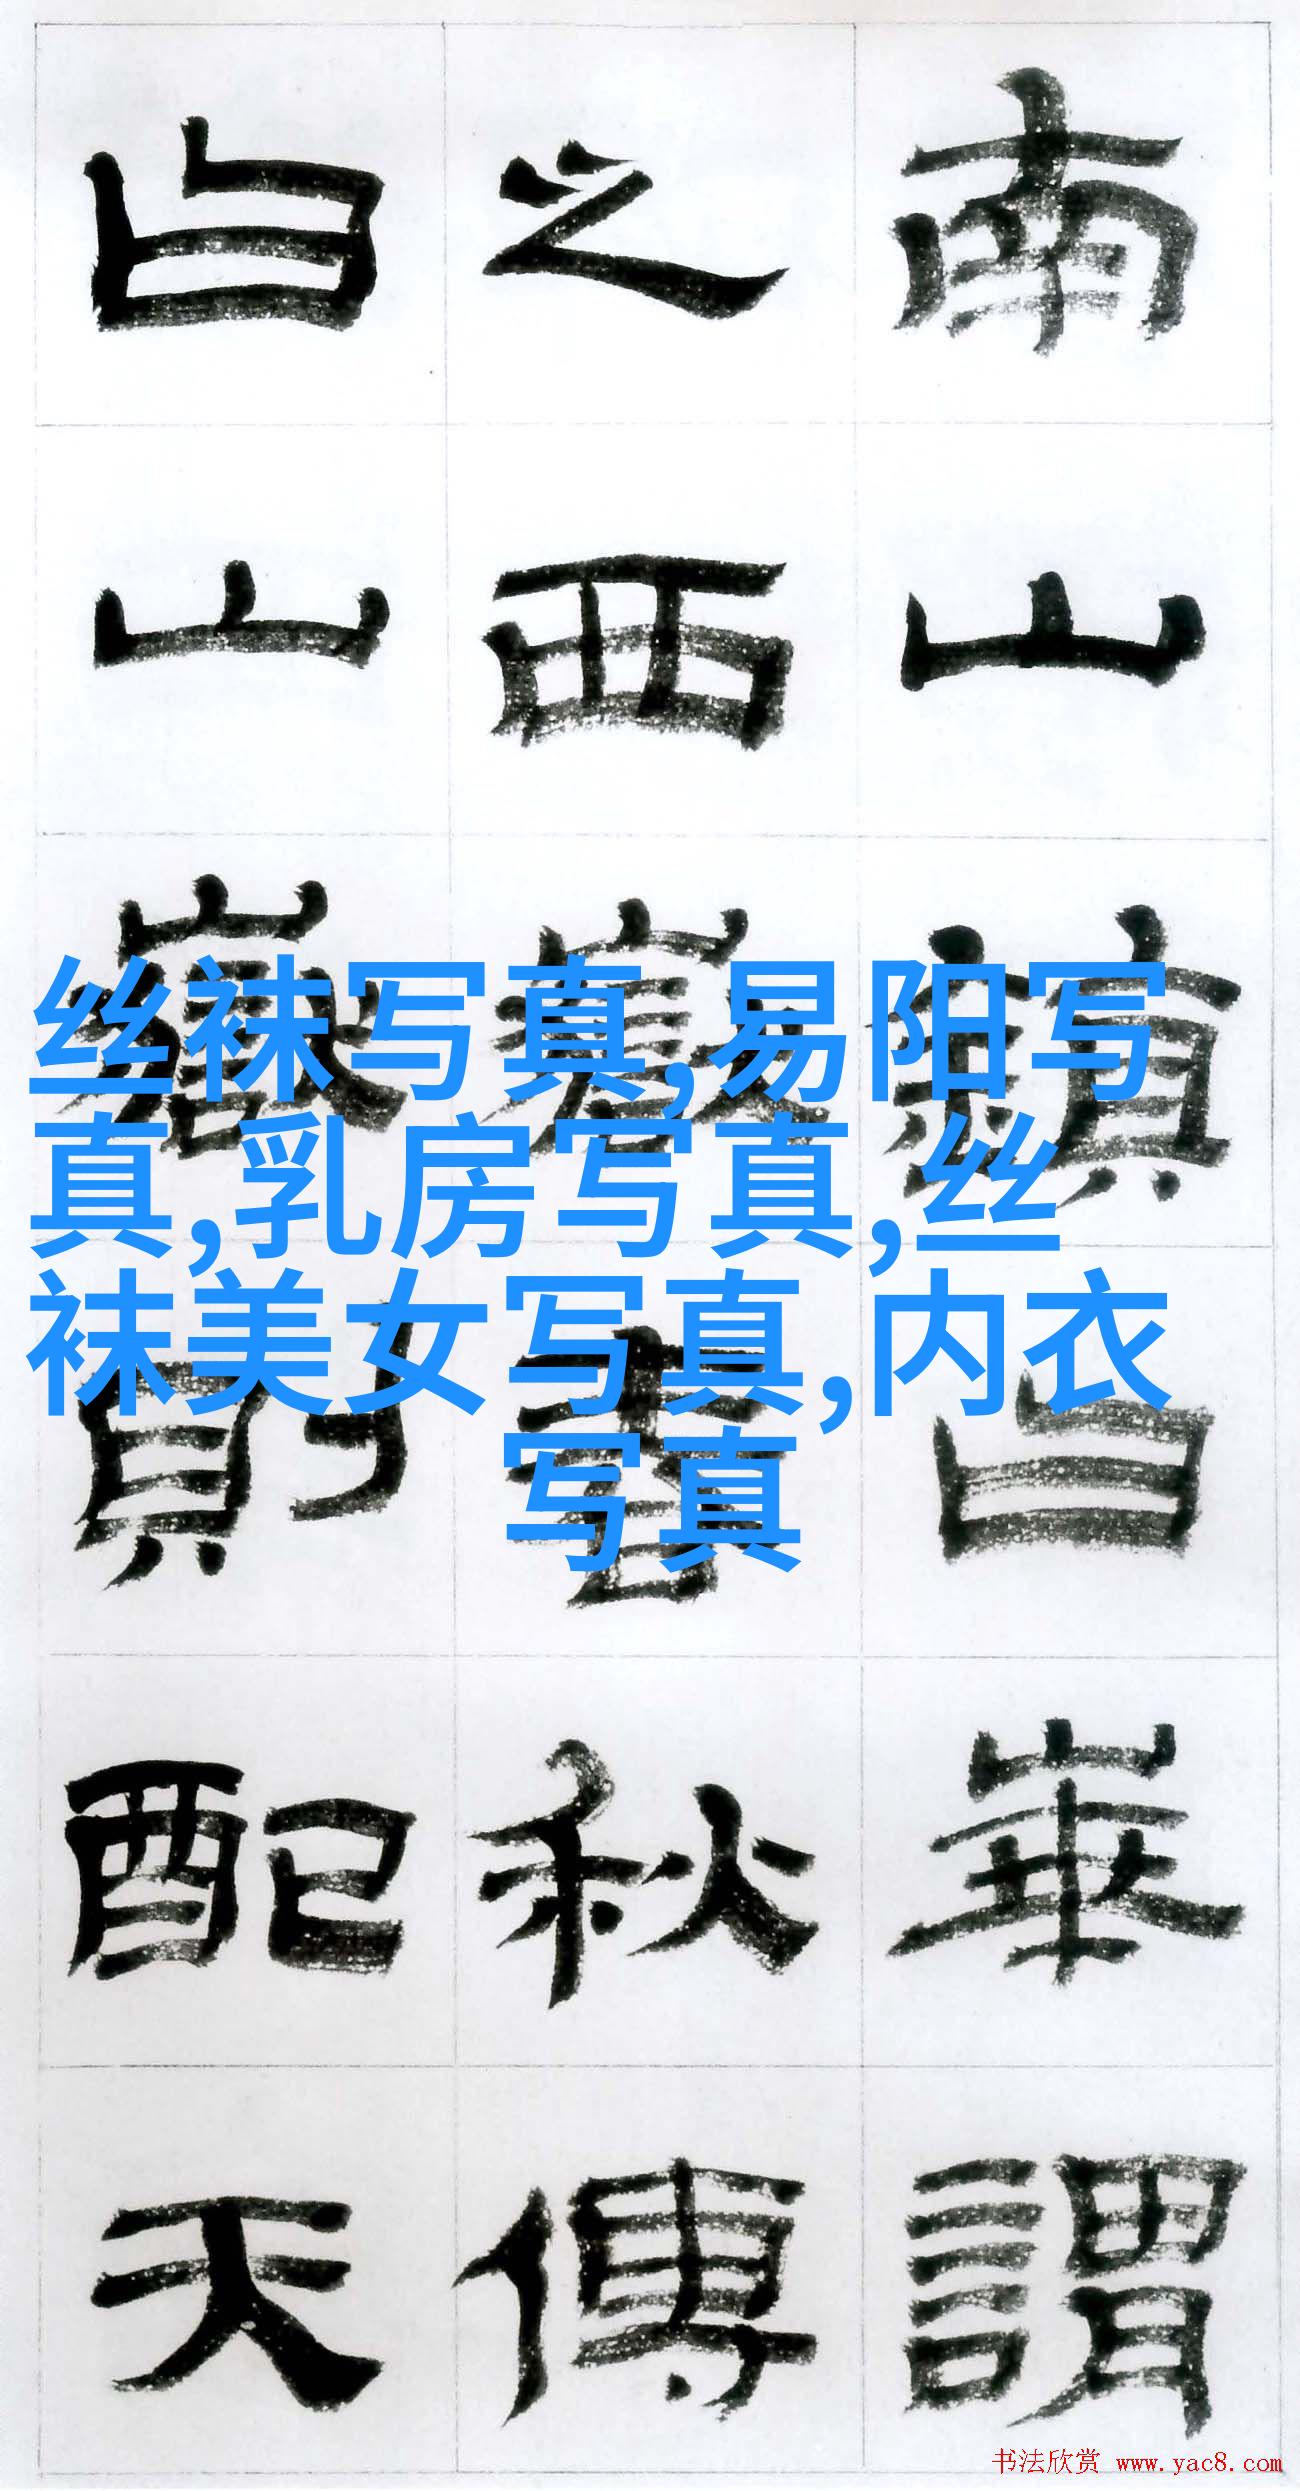 南山鎮曰崋謂
之西嶽春秋傳
曰山嶽則配天
丝袜写真,易阳写
真,乳房写真,丝
袜美女写真,内衣
写真
书法欣赏 www.yac8.com